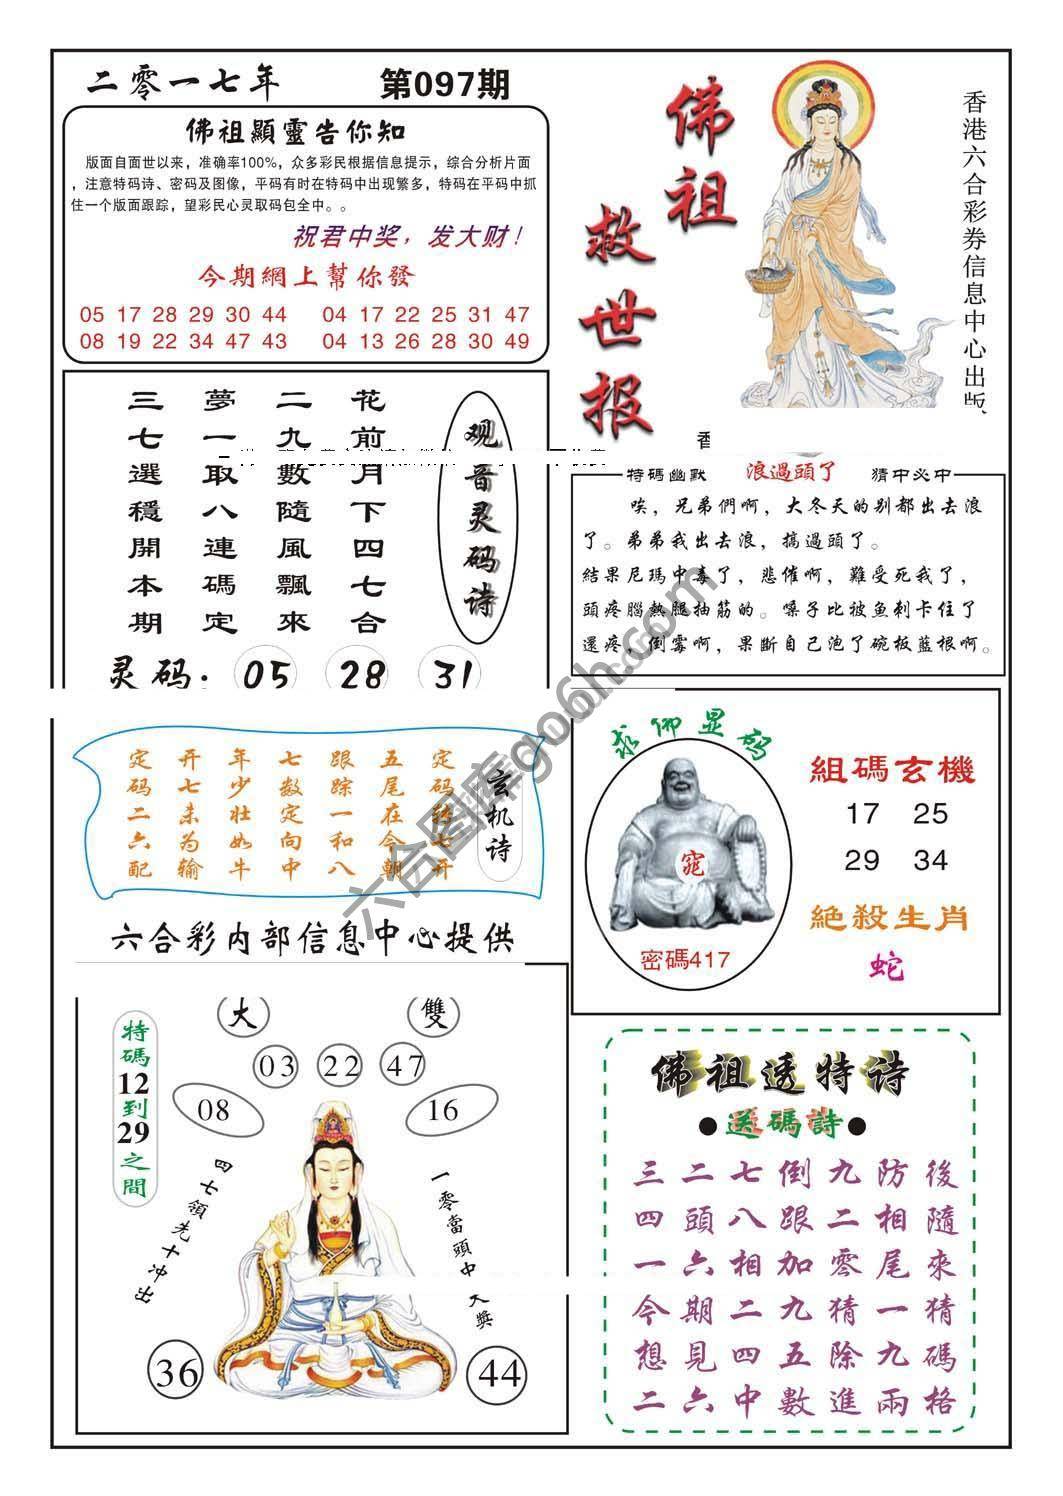 二零一七年
第097期
佛祖顯靈告你知
版面自面世以来，准确率100%，众多彩民根据信息提示，综合分析片面
，注意特码诗、密码及图像，平码有时在特码中出现繁多，特码在平码中抓
住一个版面跟踪，望彩民心灵取码包全中。。
祝君中奖，发大财！
今期網上幫你發
05 17 28 29 30 44
04 17 22 25 31 47
08 19 22 34 47 43
04 13 26 28 30 49
佛祖
救世报
香港六合彩券信息中心出版
观音灵码诗
花前月下四七合
二九數隨風飄來
夢一取八連碼定
三七選穩開本期
灵码：05 28 31
特碼幽默
浪過頭了
猜中必中
唉，兄弟們啊，大冬天的别都出去浪
了。弟弟我出去浪，搞過頭了。
結果尼瑪中毒了，悲催啊，難受死我了，
頭疼腦熱腿抽筋的。嗓子比被鱼刺卡住了
還疼，倒霉啊，果斷自己泡了碗板藍根啊。
玄机诗
定码转七开
五尾在今朝
跟踪一和八
七数定向中
年少壮如牛
开七未为输
定码二六配
六合彩内部信息中心提供
求仰显码
窕
密碼417
組碼玄機
17 25
29 34
絶殺生肖
蛇
特碼12到29之間
大
雙
03 22 47
08
16
四七領先十冲出
一零當頭中大獎
36
44
佛祖透特诗
●送碼詩●
三二七倒九防後
四頭八跟二相隨
一六相加零尾來
今期二九猜一猜
想見四五除九碼
二六中數進兩格
六合图库go6h.com